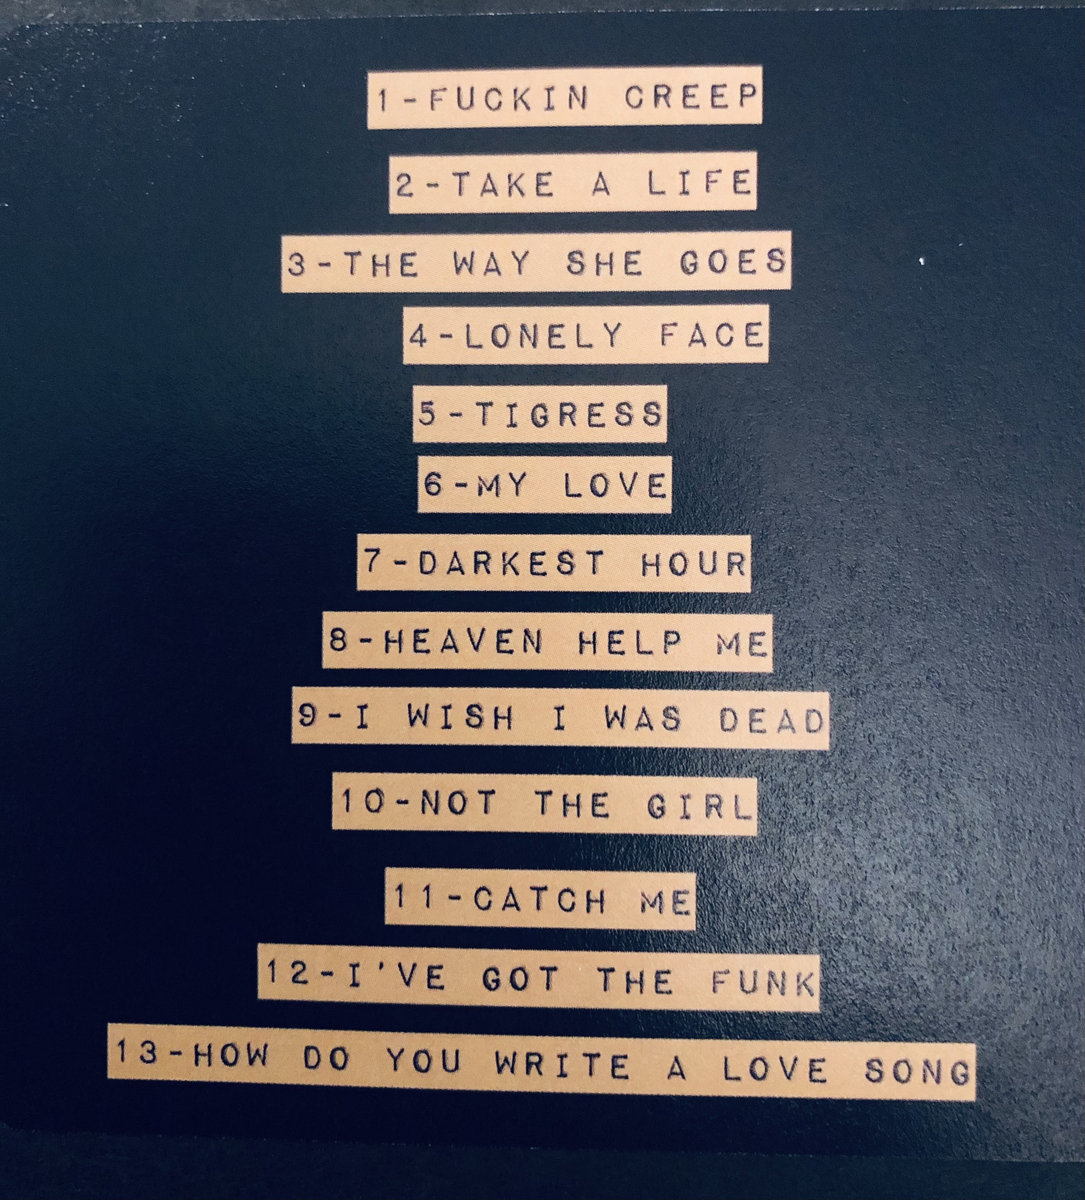 1-FUCKIN CREEP
2-TAKE A LIFE
3-THE WAY SHE GOES
4-LONELY FACE
5-TIGRESS
6-MY LOVE
7-DARKEST HOUR
8-HEAVEN HELP ME
9-I WISH I WAS DEAD
10-NOT THE GIRL
11-CATCH ME
12-I'VE GOT THE FUNK
13-HOW DO YOU WRITE A LOVE SONG